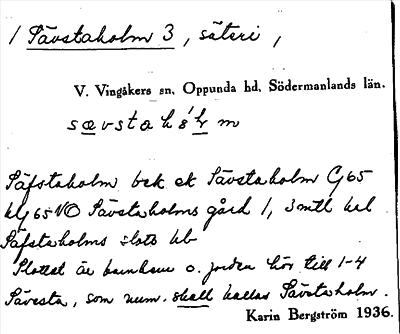 1 Sävstaholm 3, säteri,
V. Vingåkers sn, Oppunda hd, Södermanlands län.
sævstahɷ̀lm
Säfstaholm bek ek Sävstaholm Gj65
hfl65NO Sävstaholms gård 1, 3 mtl kal
Säfstaholms slott hb
Slottet är barnhem o. jorden hör till 1-4
Sävesta, som num. skall kallas Sävstaholm.
Karin Bergström 1936.